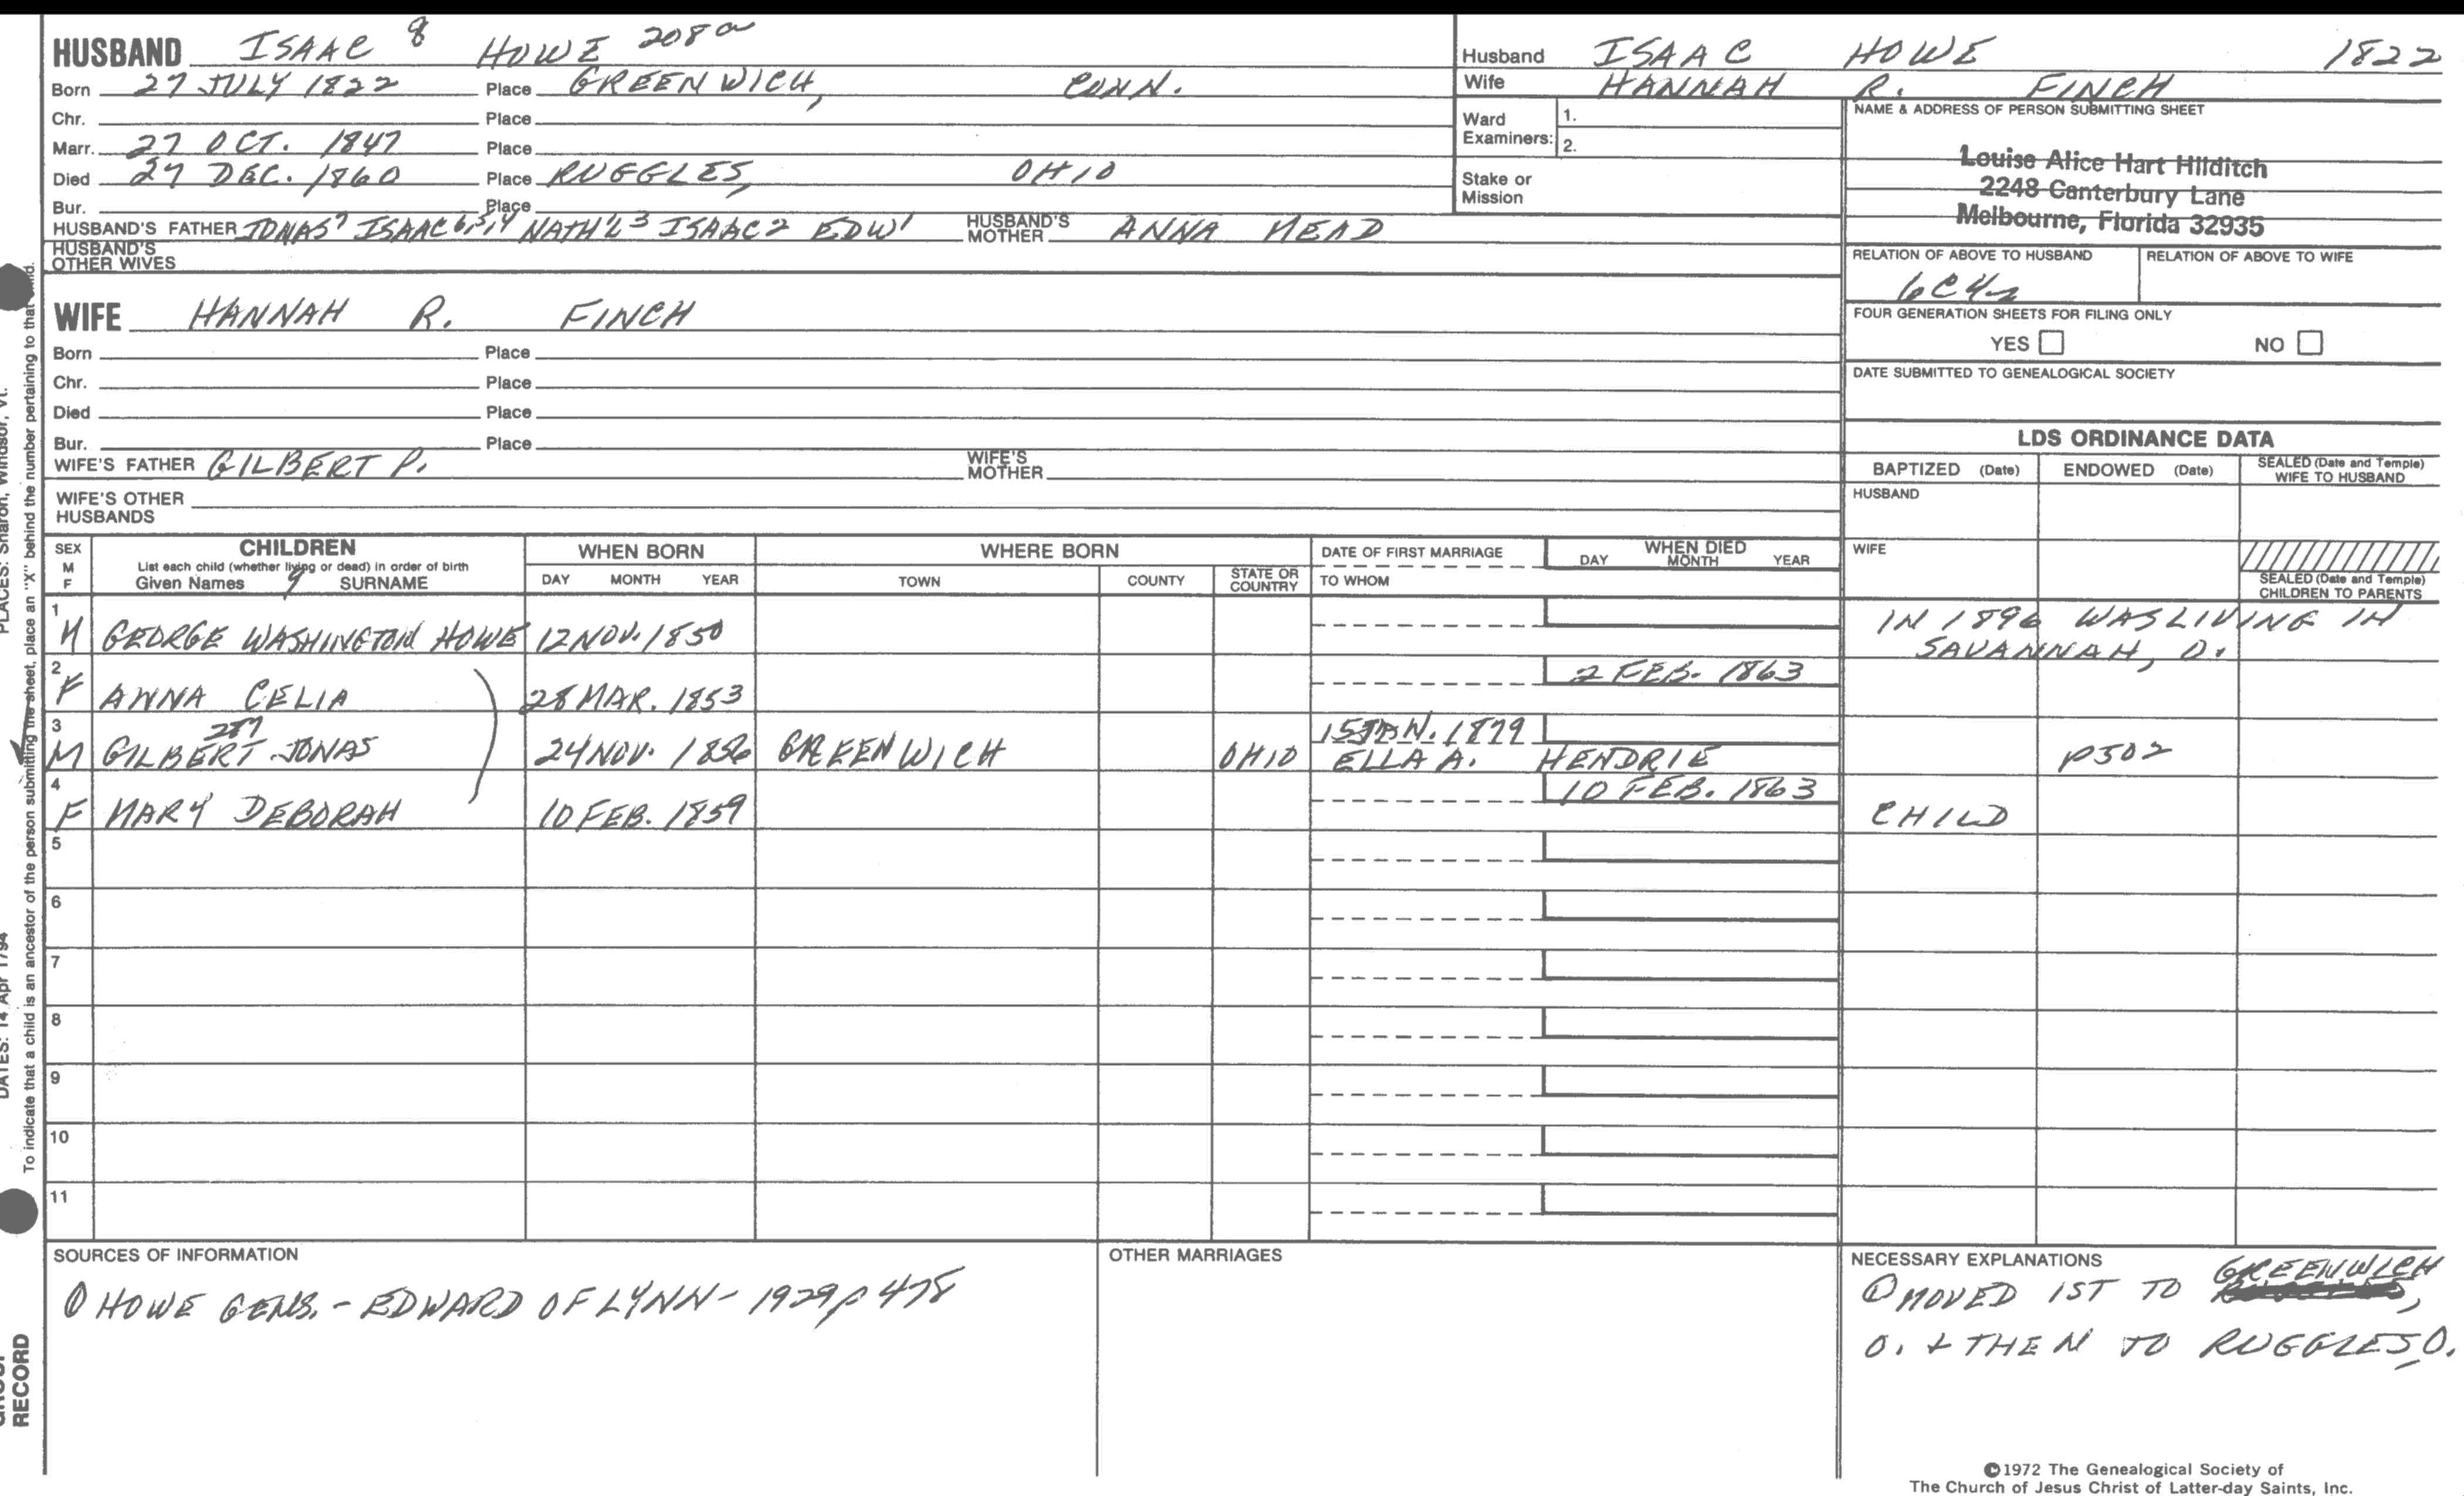 HUSBAND ISAAC 8 HOWE 208a
Born 27 JULY 1822 Place GREENWICH, CONN.
Chr. Place
Marr. 27 OCT. 1847 Place
Died 27 DEC. 1860 Place RUGGLES, OHIO
Bur. Place
HUSBAND'S FATHER JONAS7 ISAAC6,5,4 NATH'L3 ISAAC2 EDW1 HUSBAND'S MOTHER ANNA MEAD
HUSBAND'S OTHER WIVES
Husband ISAAC HOWE 1822
Wife HANNAH R. FINCH
Ward Examiners: 1.
2.
Stake or Mission
NAME & ADDRESS OF PERSON SUBMITTING SHEET
Louise Alice Hart Hilditch
2248 Canterbury Lane
Melbourne, Florida 32935
RELATION OF ABOVE TO HUSBAND RELATION OF ABOVE TO WIFE
6C4
FOUR GENERATION SHEETS FOR FILING ONLY
YES NO
DATE SUBMITTED TO GENEALOGICAL SOCIETY
WIFE HANNAH R. FINCH
Born Place
Chr. Place
Died Place
Bur. Place
WIFE'S FATHER GILBERT P. WIFE'S MOTHER
WIFE'S OTHER HUSBANDS
LDS ORDINANCE DATA
BAPTIZED (Date) ENDOWED (Date) SEALED (Date and Temple) WIFE TO HUSBAND
HUSBAND
WIFE
SEALED (Date and Temple) CHILDREN TO PARENTS
SEX M F CHILDREN
List each child (whether living or dead) in order of birth
Given Names 9 SURNAME
WHEN BORN DAY MONTH YEAR
WHERE BORN TOWN COUNTY STATE OR COUNTRY
DATE OF FIRST MARRIAGE TO WHOM
WHEN DIED DAY MONTH YEAR
1 M GEORGE WASHINGTON HOWE 12 NOV. 1850 IN 1896 WAS LIVING IN
SAVANNAH, O.
2 F ANNA CELIA 28 MAR. 1853 2 FEB. 1863
3 M GILBERT JONAS 287 24 NOV. 1856 GREENWICH OHIO 15 JAN. 1879
ELLA A. HENDRIE P502
4 F MARY DEBORAH 10 FEB. 1859 10 FEB. 1863 CHILD
5
6
7
8
9
10
11
SOURCES OF INFORMATION
① HOWE GENS. - EDWARD OF LYNN - 1929 p 478
OTHER MARRIAGES
NECESSARY EXPLANATIONS
① MOVED 1ST TO GREENWICH,
O. + THEN TO RUGGLES, O.
©1972 The Genealogical Society of
The Church of Jesus Christ of Latter-day Saints, Inc.
PLACES: Sharon, Windsor, Vt.
DATES: 14 Apr 1794
To indicate that a child is an ancestor of the person submitting the sheet, place an "X" behind the number pertaining to that child.
RECORD